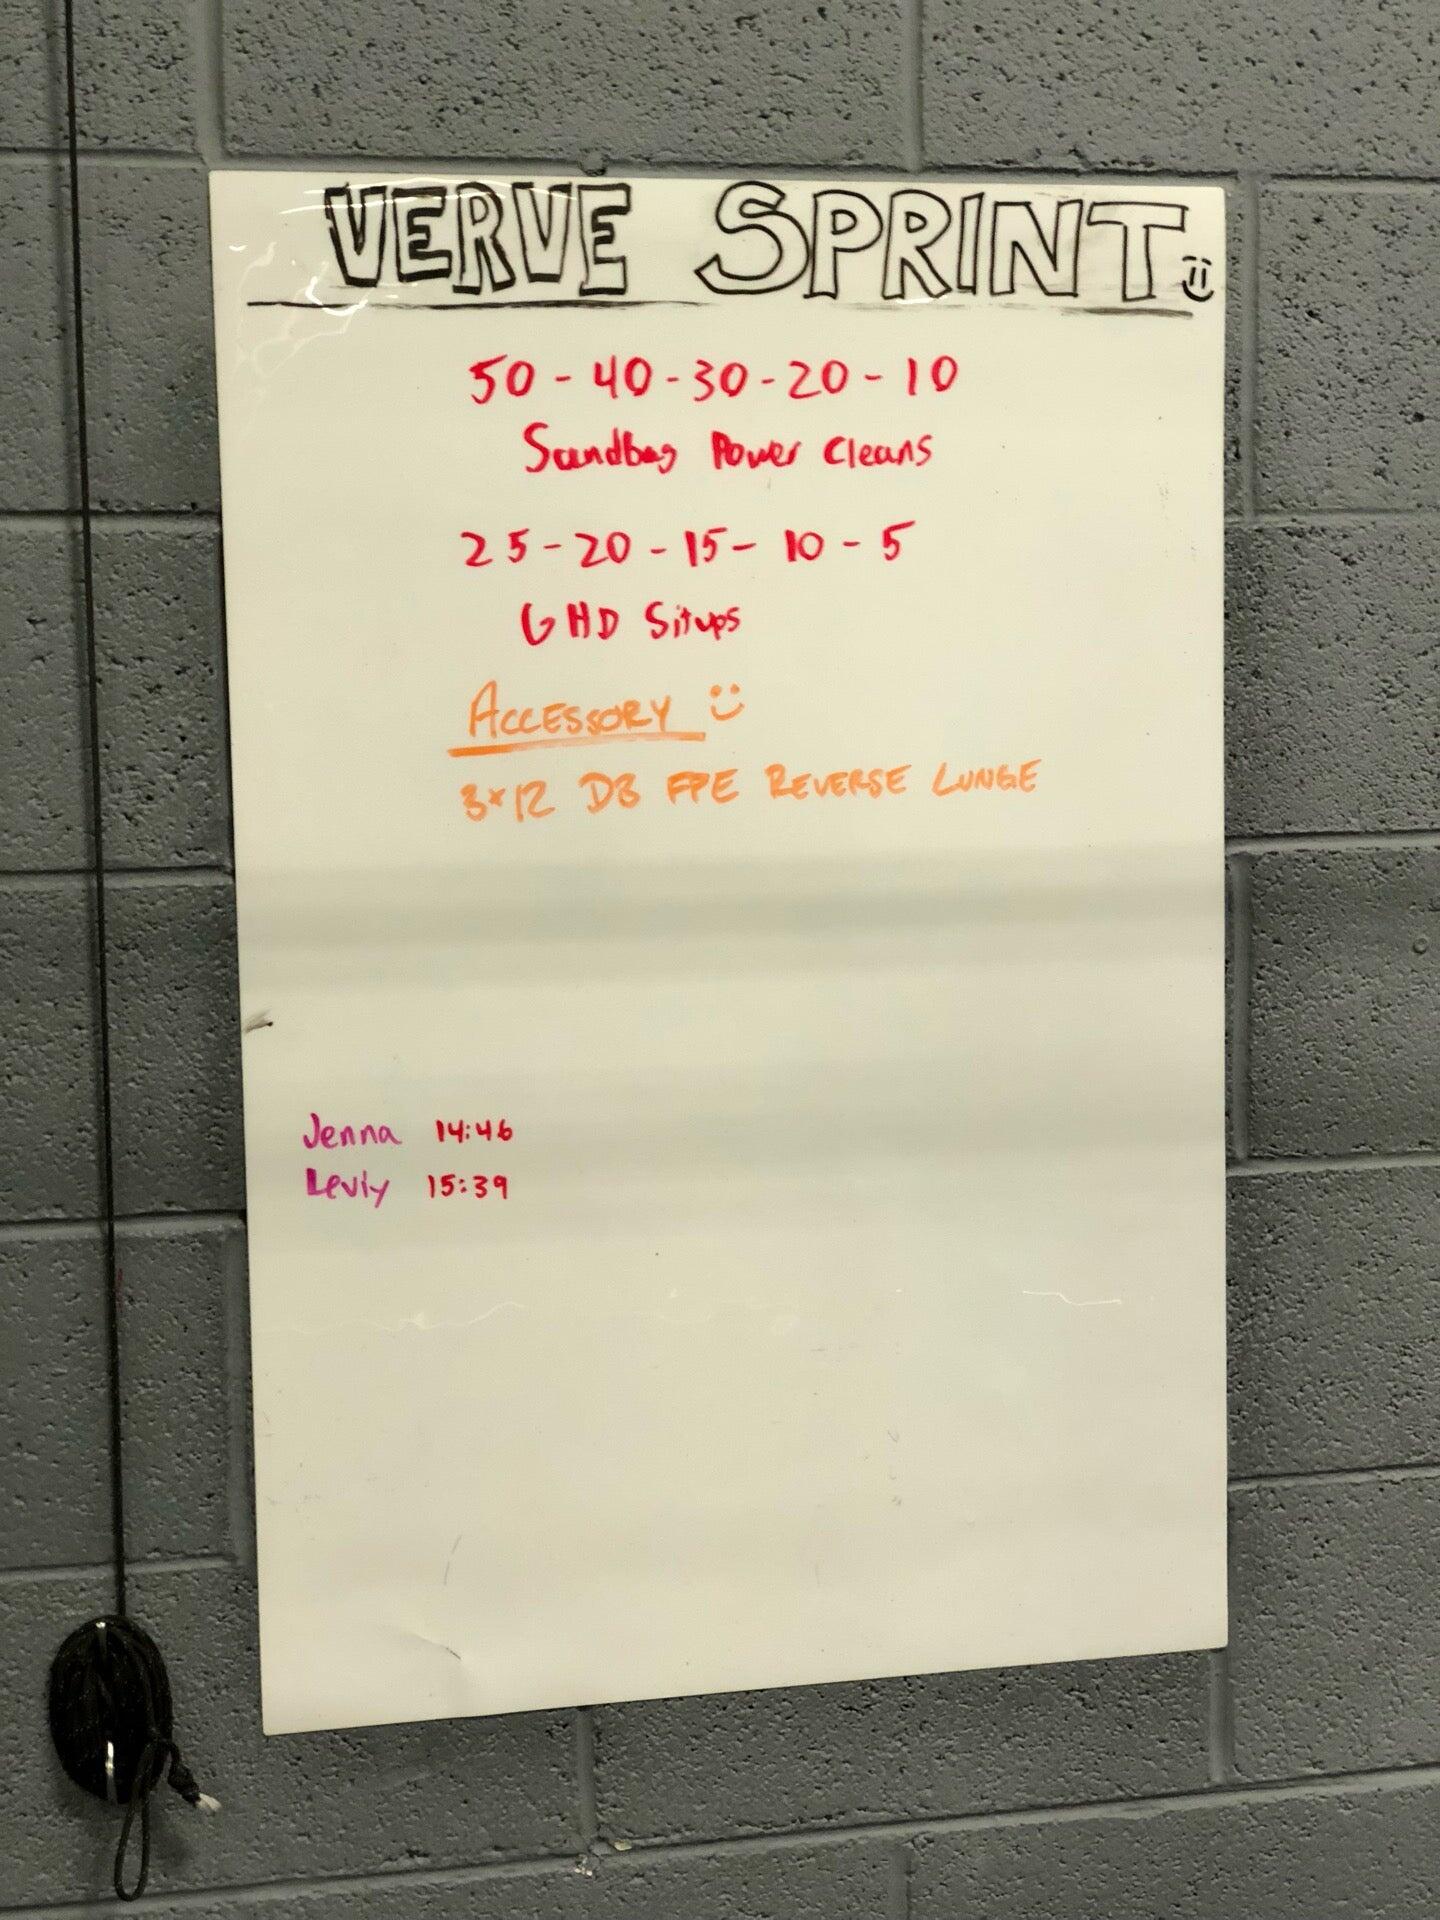 VERVE SPRINT
50 - 40 - 30 - 20 - 10
Sandbag Power Cleans
25 - 20 - 15 - 10 - 5
GHD Situps
ACCESSORY
3×12 DB FFE REVERSE LUNGE
Jenna 14:46
Leviy 15:39